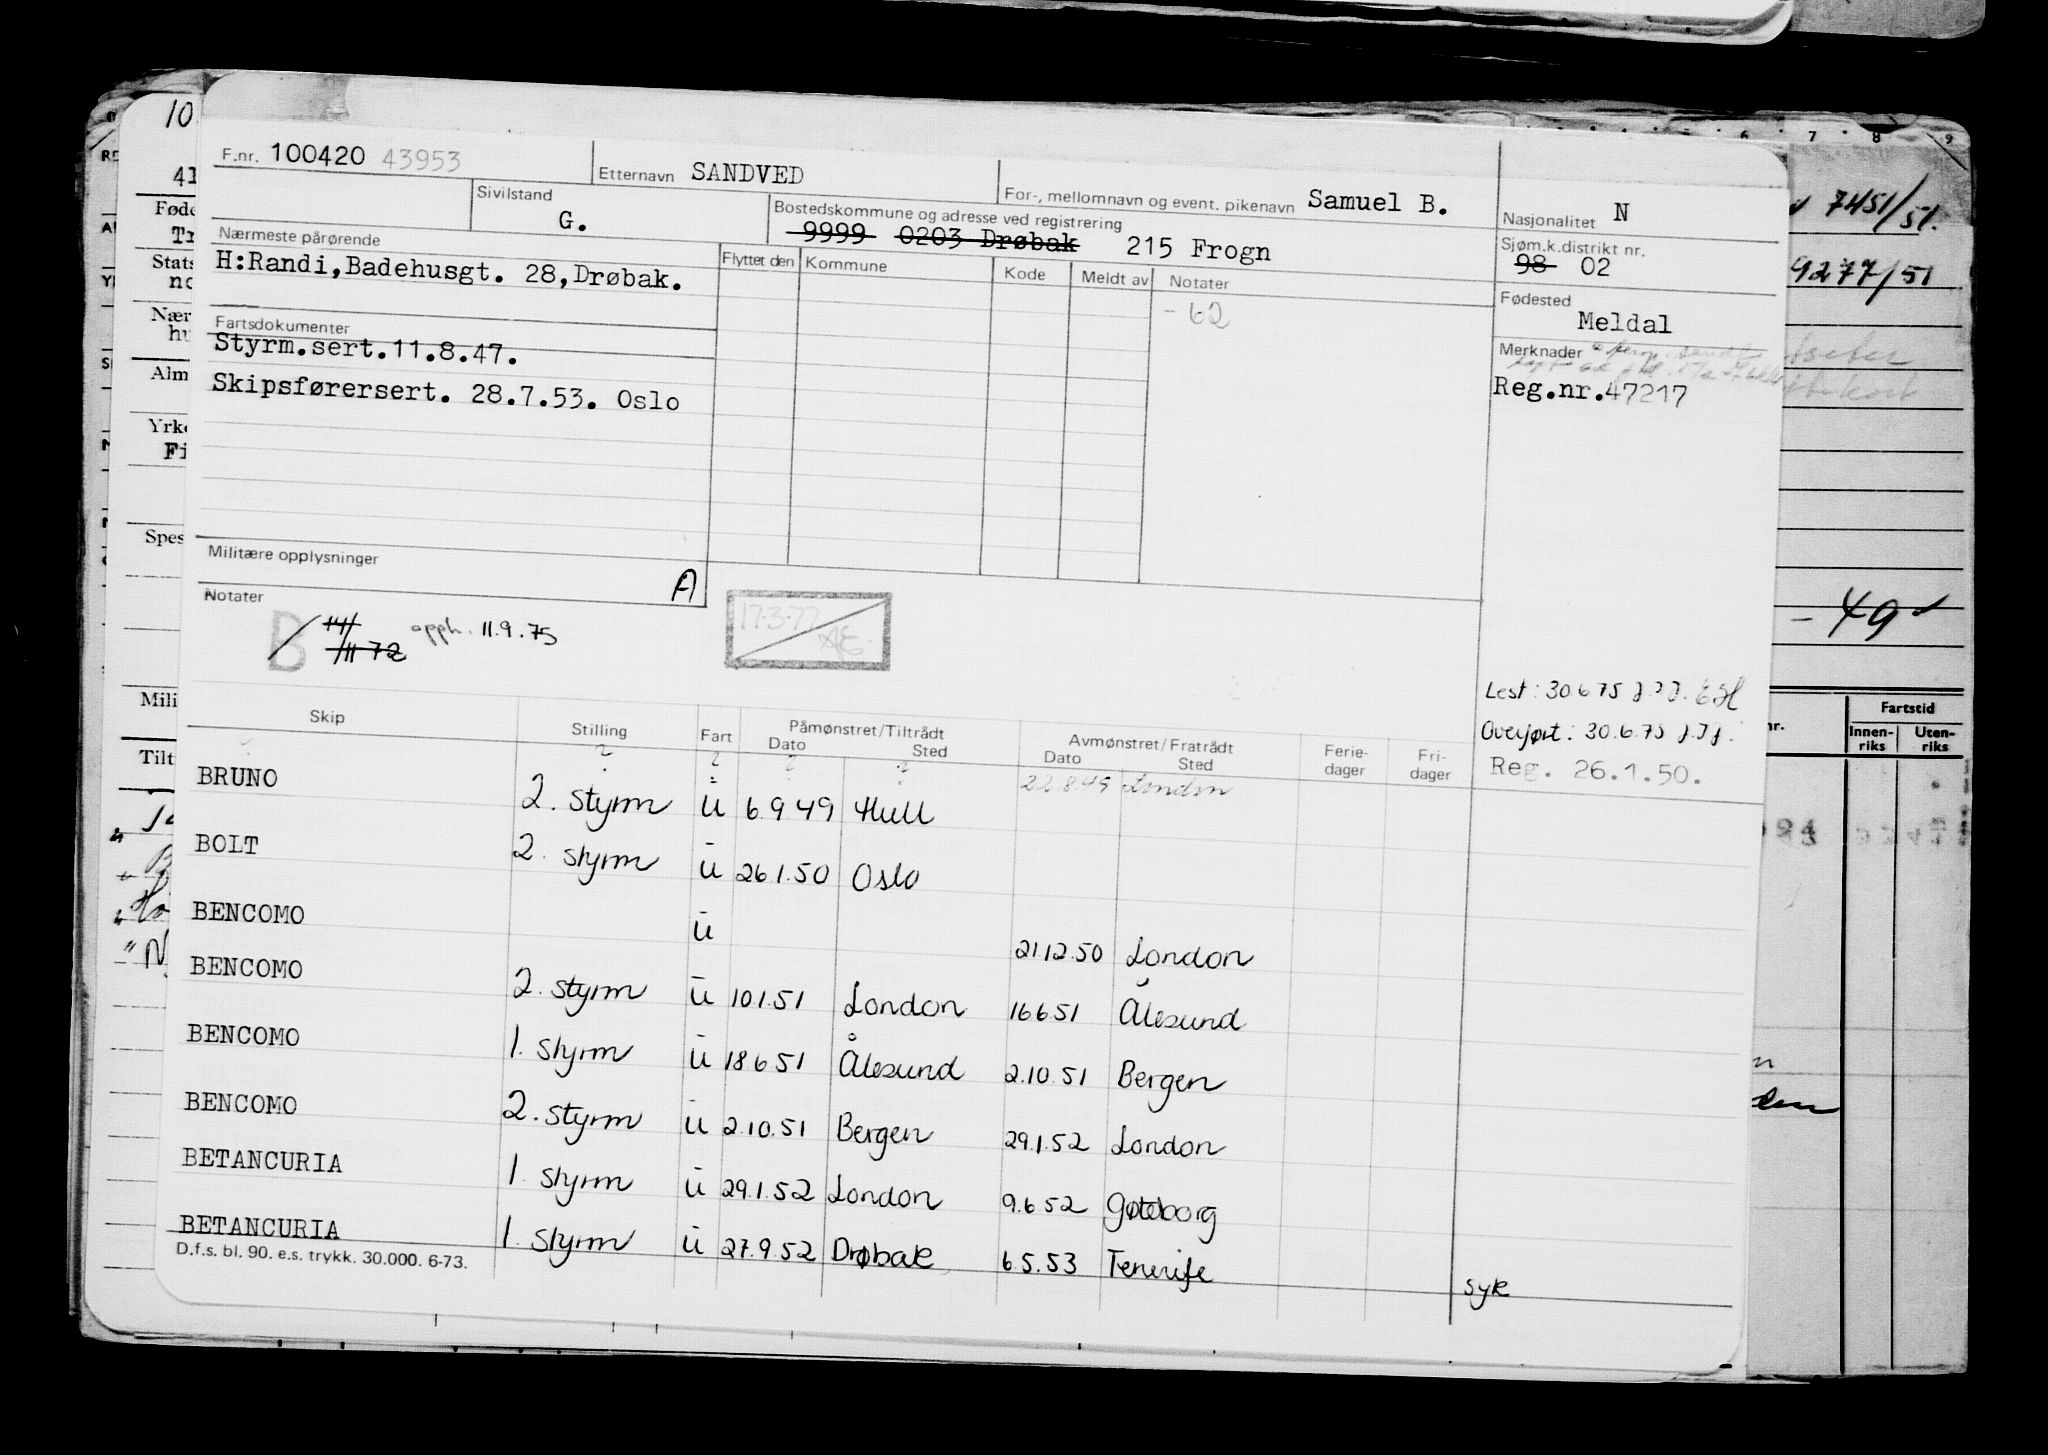 F.nr. 100420 43953 Etternavn SANDVED For-, mellomnavn og event. pikenavn Samuel B. Nasjonalitet N
Sivilstand G. Bostedskommune og adresse ved registrering 9999 0203 Drøbak 215 Frogn Sjøm.k.distrikt nr. 98 02
Nærmeste pårørende Flyttet den Kommune Kode Meldt av Notater Fødested
H:Randi,Badehusgt. 28,Drøbak. - 62 Meldal
Fartsdokumenter Merknader
Styrm.sert.11.8.47. Reg.nr.47217
Skipsførersert. 28.7.53. Oslo
Militære opplysninger A
Notater
B 11.9.75 17.3.77
11 72
Lest: 30.6.75
Overført: 30.6.75
Reg. 26.1.50.
Skip Stilling Fart Påmønstret/Tiltrådt Avmønstret/Fratrådt Ferie- Fri-
Dato Sted Dato Sted dager dager
BRUNO 2. styrm u 6.9.49 Hull 22.8.49 London
BOLT 2. styrm u 26.1.50 Oslo
BENCOMO u 21.12.50 London
BENCOMO 2. styrm u 10.1.51 London 16.6.51 Ålesund
BENCOMO 1. styrm u 18.6.51 Ålesund 2.10.51 Bergen
BENCOMO 2. styrm u 2.10.51 Bergen 29.1.52 London
BETANCURIA 1. styrm u 29.1.52 London 9.6.52 Gøteborg
BETANCURIA 1. styrm u 27.9.52 Drøbak 6.5.53 Tenerife syk
D.f.s. bl. 90. e.s. trykk. 30.000. 6-73.
10
41
Føde
Stats
Nær
Alm
Yrke
Fi
Spes
Mili
Tilt
6 7 8 9
7451/51.
9277/51
- 49
Fartstid
nr. Innen- Uten-
riks riks